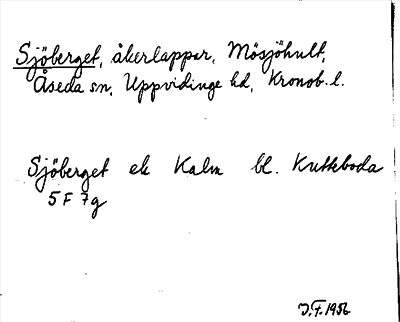 Sjöberget, åkerlappar, Mösjöhult,
Åseda sn, Uppvidinge hd, Kronob. l.
Sjöberget ek Kalm bl. Kutteboda
5 F 7g
J.F. 1956